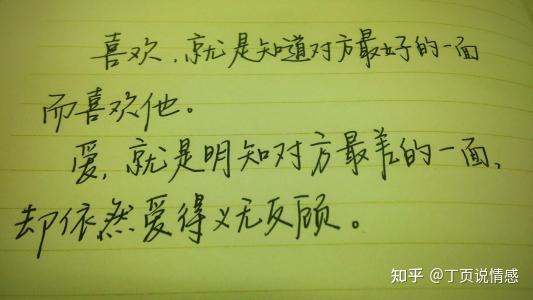 喜欢,就是知道对方最好的一面
而喜欢他。
爱,就是明知对方最差的一面,
却依然爱得义无反顾。
知乎 @丁页说情感